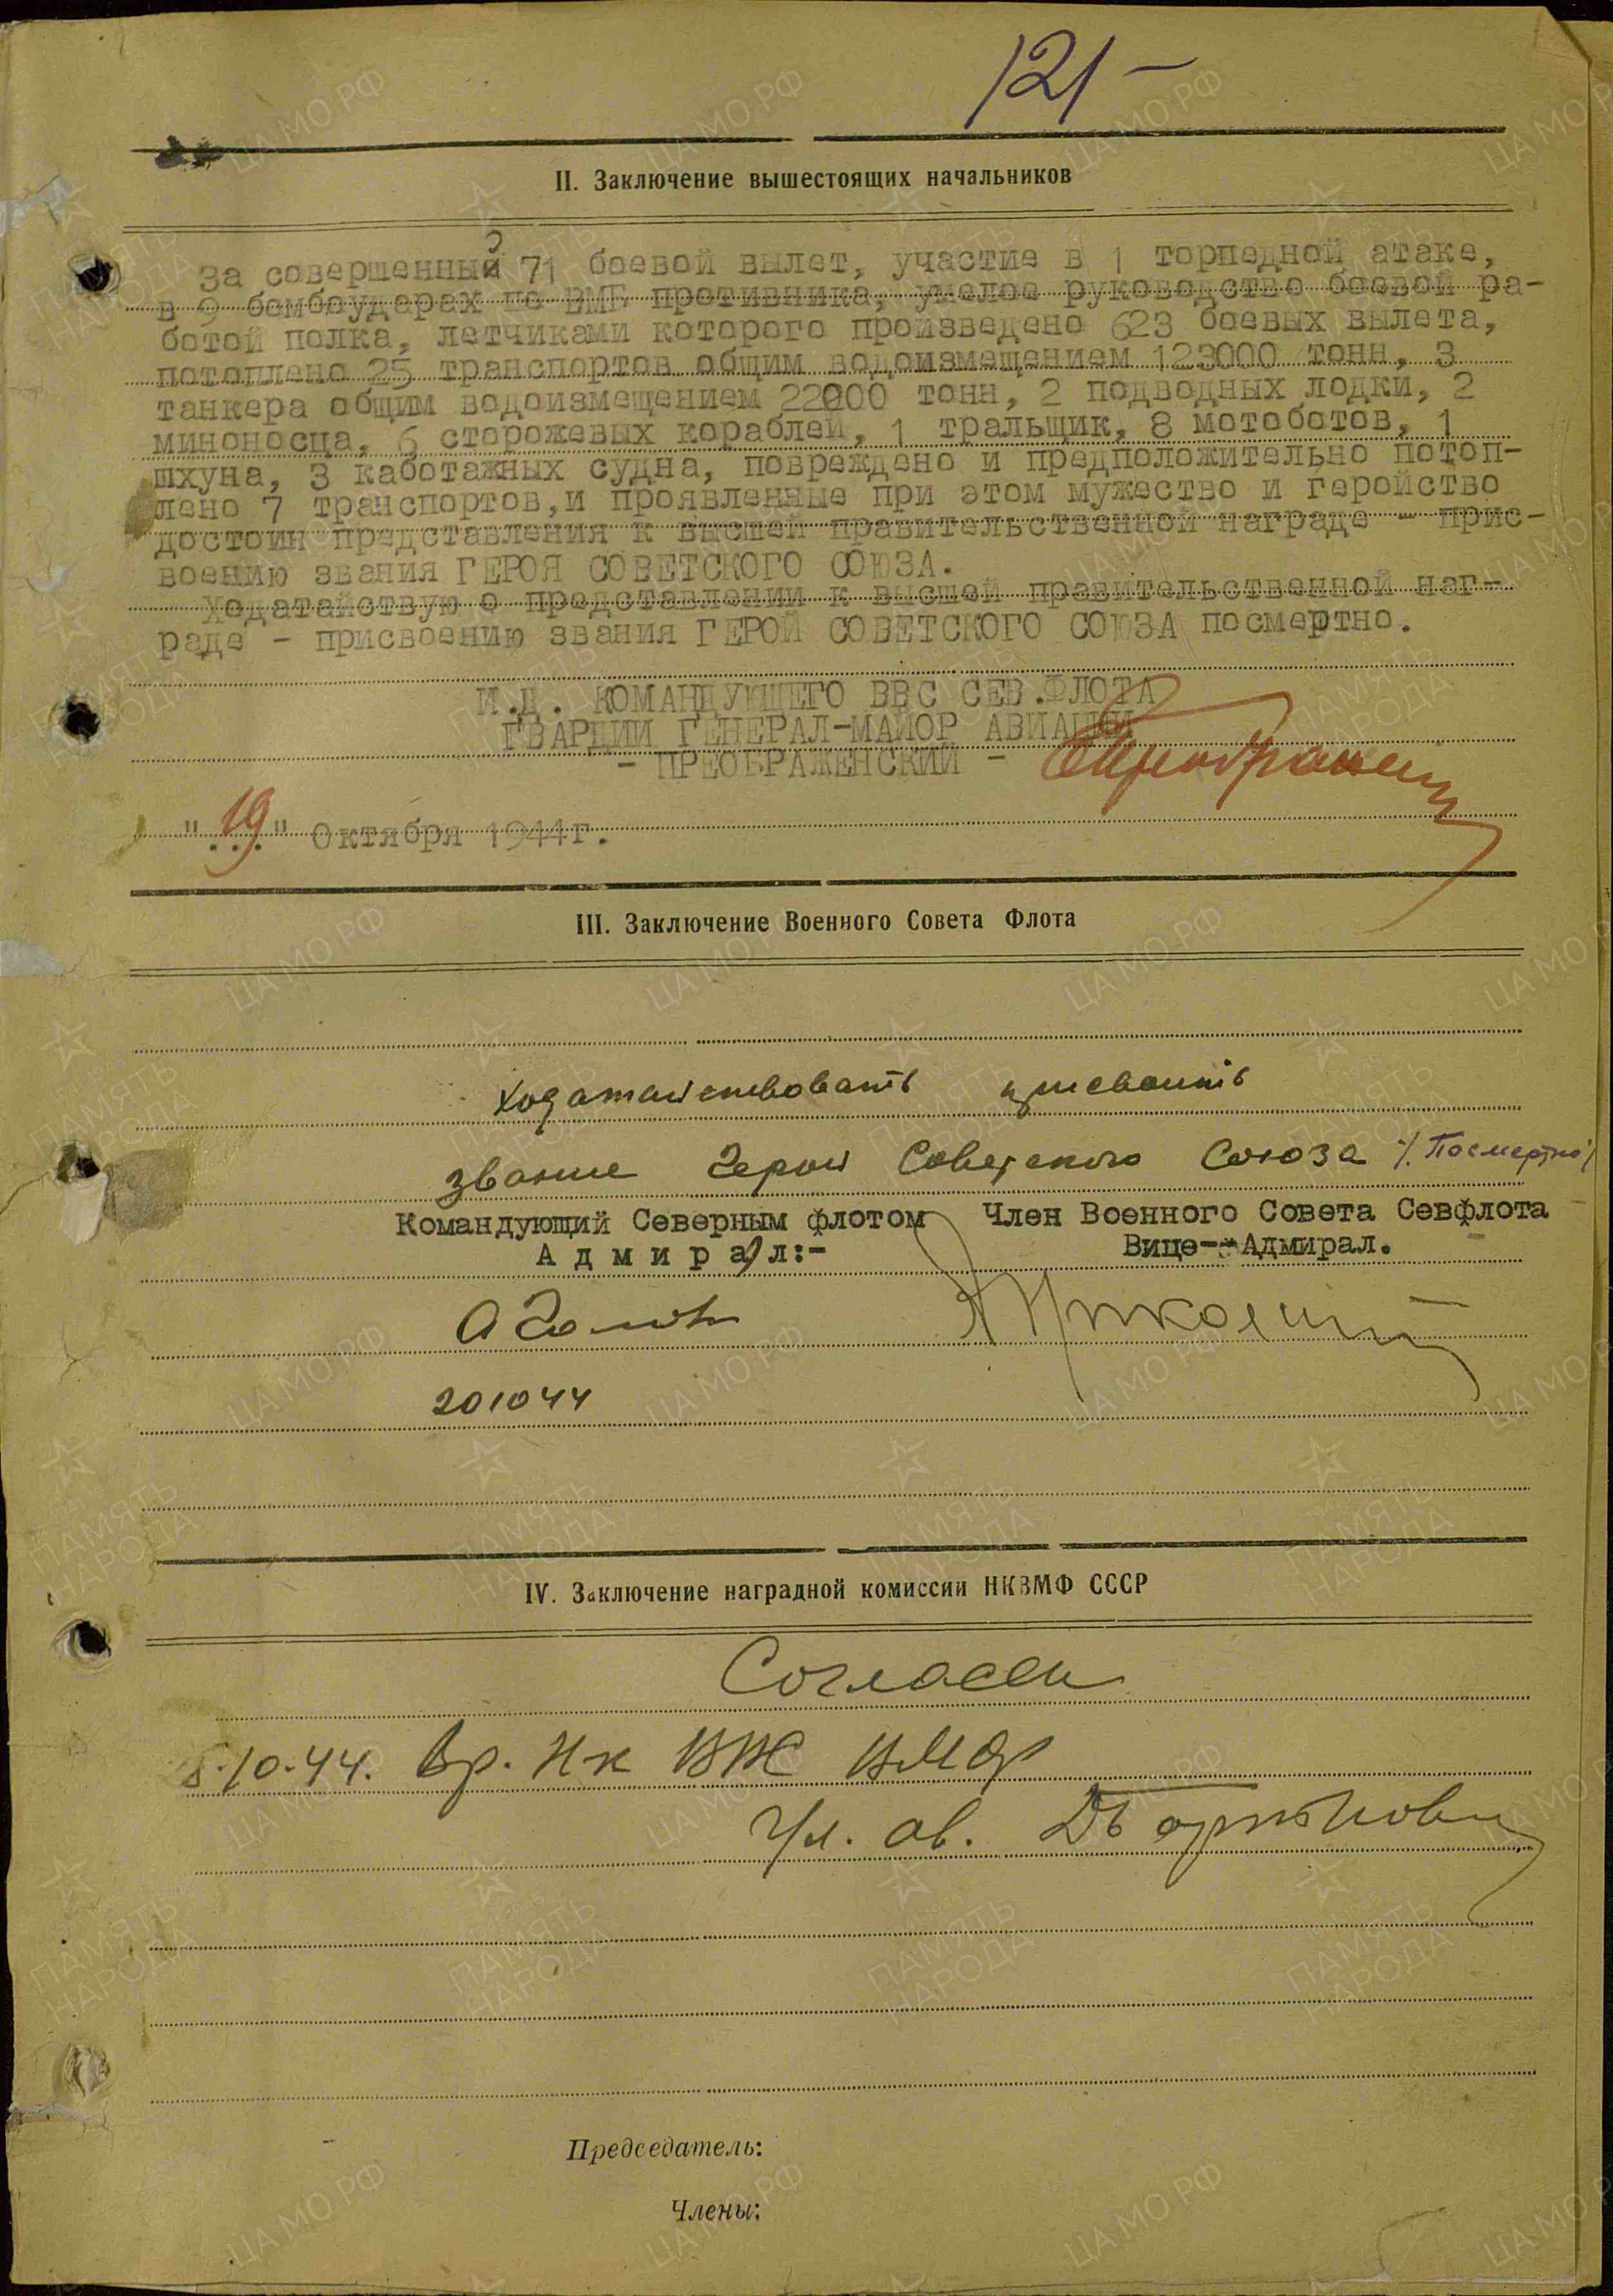 121 –
II. Заключение вышестоящих начальников
За совершенный 71 боевой вылет, участие в 1 торпедной атаке,
в 9 бомбоударах по ВМБ противника, умелое руководство боевой ра-
ботой полка, летчиками которого произведено 623 боевых вылета,
потоплено 25 транспортов общим водоизмещением 123000 тонн, 3
танкера общим водоизмещением 22000 тонн, 2 подводных лодки, 2
миноносца, 6 сторожевых кораблей, 1 тральщик, 8 мотоботов, 1
шхуна, 3 каботажных судна, повреждено и предположительно потоп-
лено 7 транспортов, и проявленные при этом мужество и геройство
достоин представления к высшей правительственной награде - прис-
воению звания ГЕРОЯ СОВЕТСКОГО СОЮЗА.
Ходатайствую о представлении к высшей правительственной наг-
раде - присвоению звания ГЕРОЙ СОВЕТСКОГО СОЮЗА посмертно.
И.Д. КОМАНДУЮЩЕГО ВВС СЕВ.ФЛОТА
ГВАРДИИ ГЕНЕРАЛ-МАЙОР АВИАЦИИ
- ПРЕОБРАЖЕНСКИЙ -
"19" Октября 1944г.
III. Заключение Военного Совета Флота
Ходатайствовать присвоить
звание Героя Советского Союза /Посмертно/
Командующий Северным флотом Член Военного Совета Севфлота
Адмирал:- Вице-Адмирал.
А Голов Николаев
201044
IV. Заключение наградной комиссии НКВМФ СССР
Согласен
10.44. Вр. Нк ВМФ
ав.
Председатель:
Члены:
ЦАМО РФ
ПАМЯТЬ НАРОДА